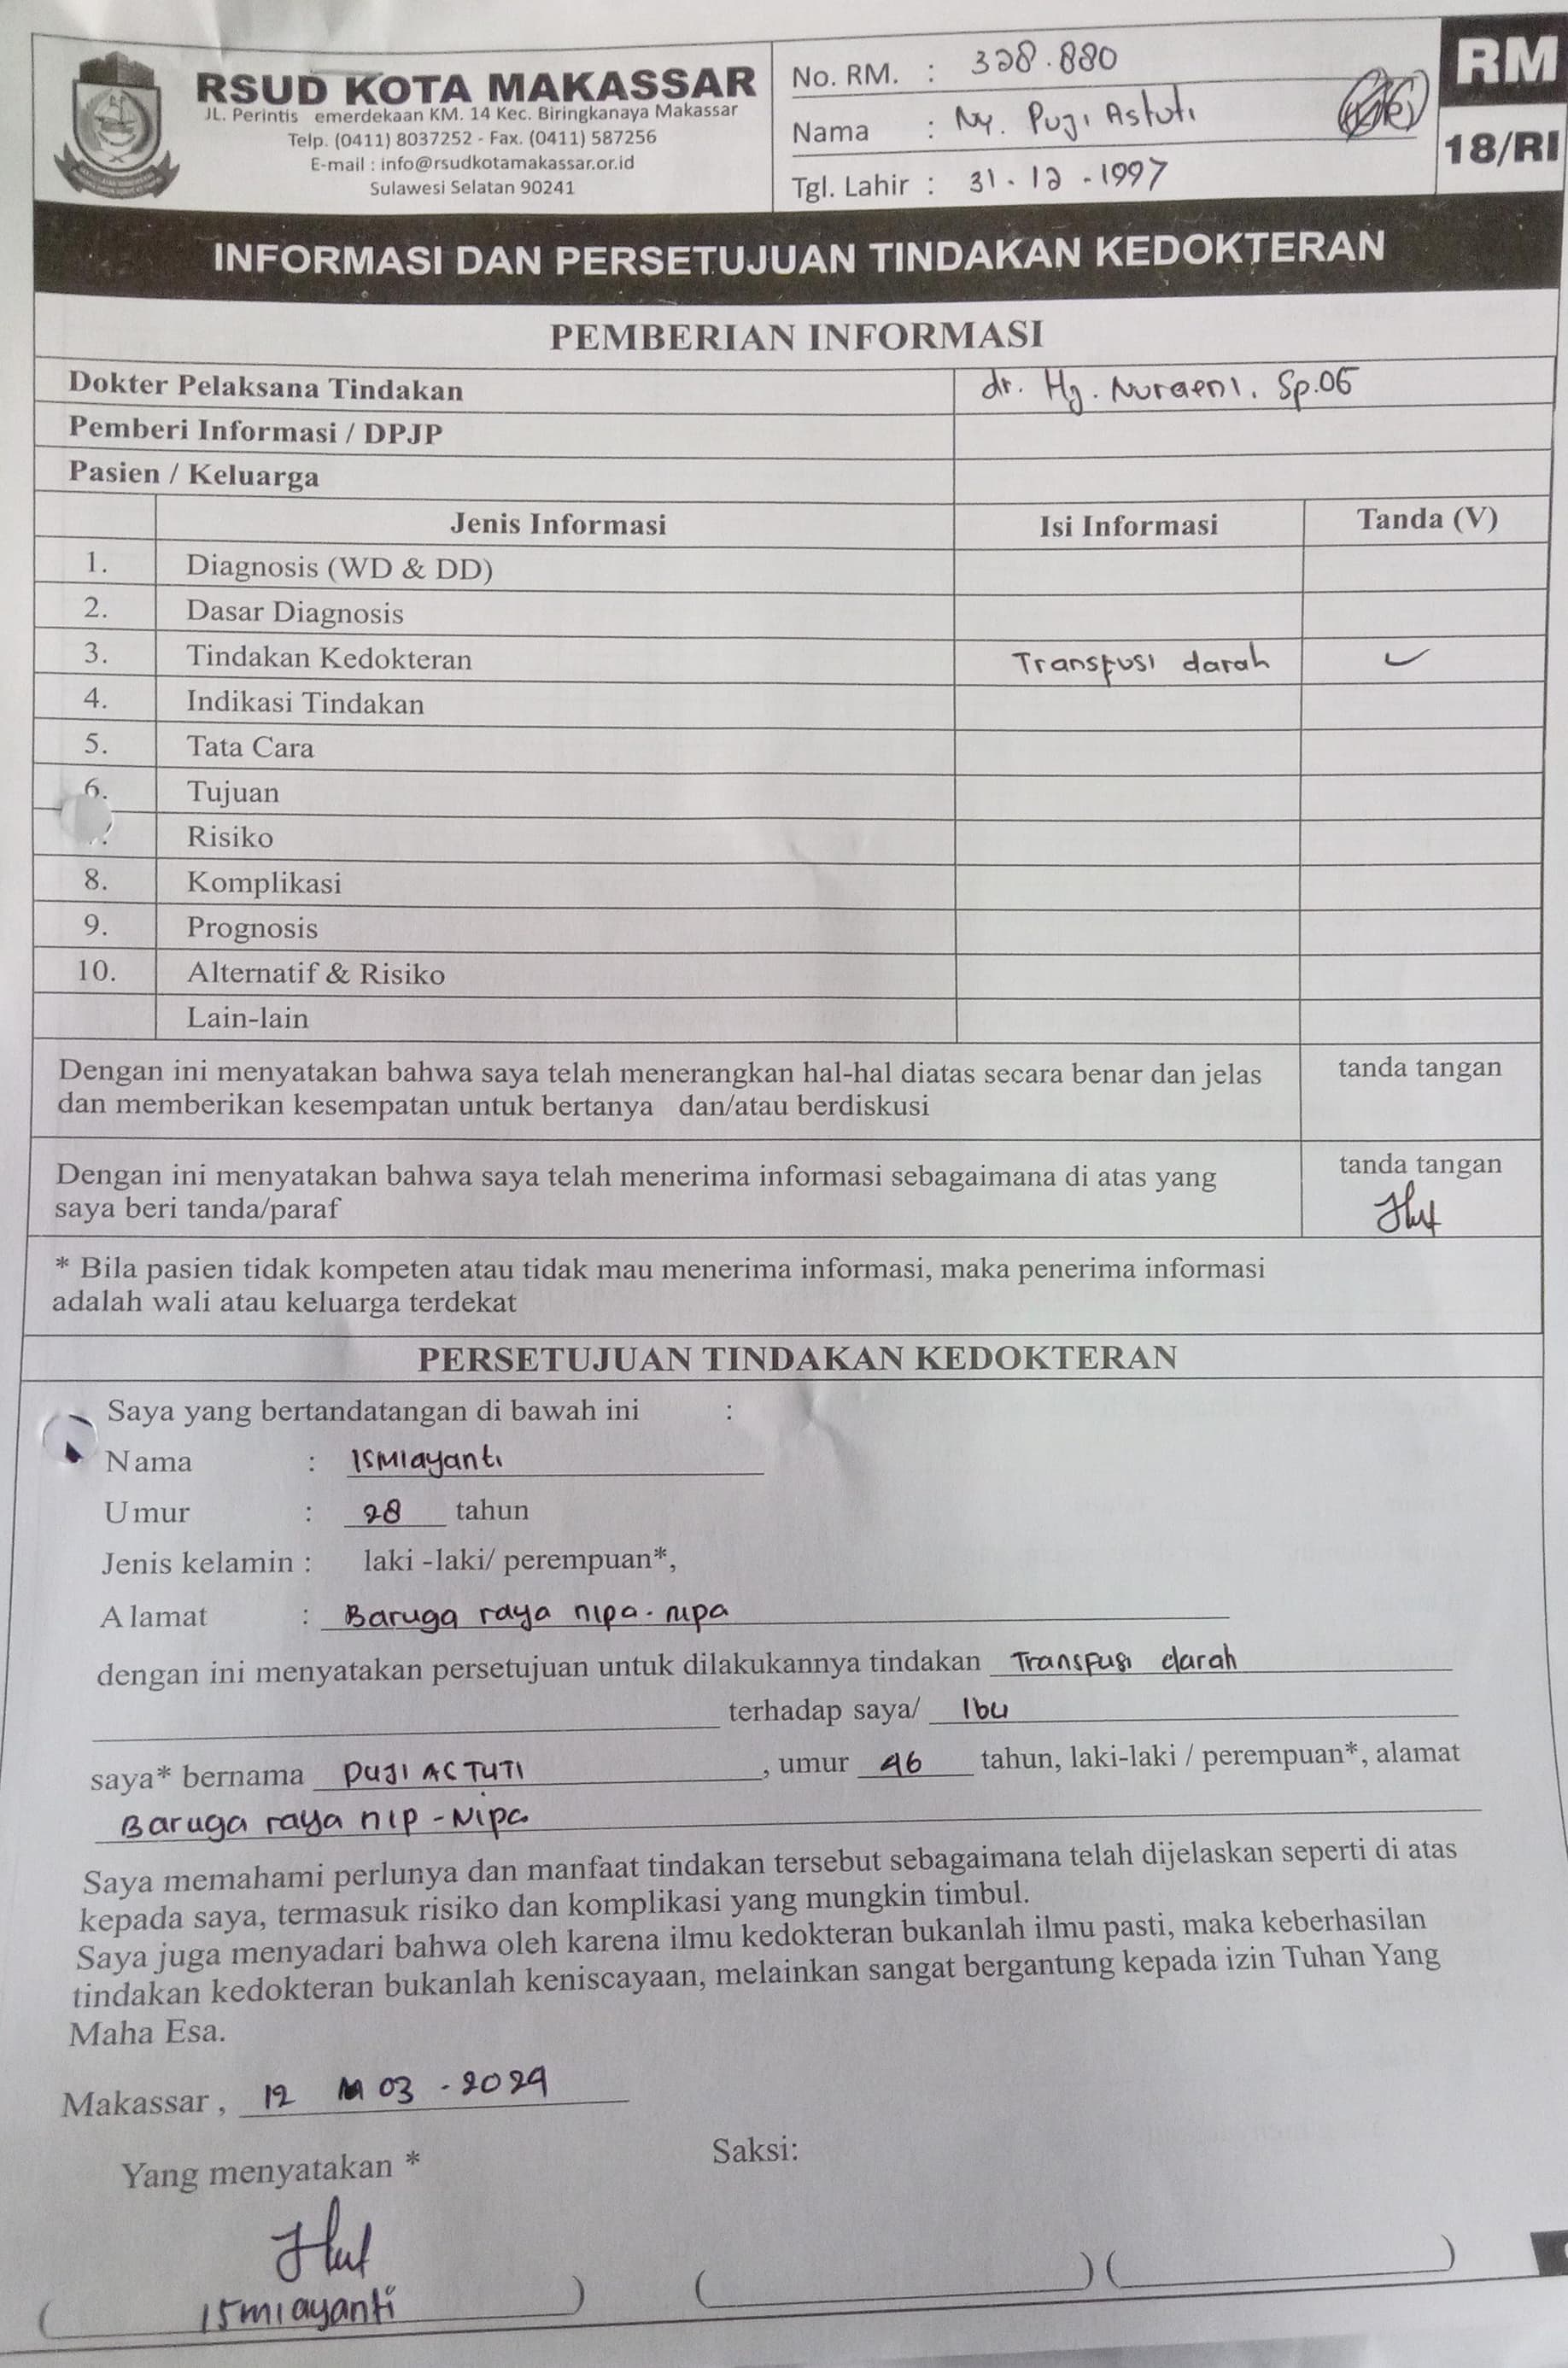 RSUD KOTA MAKASSAR
JL. Perintis emerdekaan KM. 14 Kec. Biringkanaya Makassar
Telp. (0411) 8037252 - Fax. (0411) 587256
E-mail : info@rsudkotamakassar.or.id
Sulawesi Selatan 90241
No. RM. : 328.880
Nama : Ny. Puji Astuti
Tgl. Lahir : 31 - 12 - 1997
RM
18/RI
INFORMASI DAN PERSETUJUAN TINDAKAN KEDOKTERAN
PEMBERIAN INFORMASI
Dokter Pelaksana Tindakan dr. Hj. Nuraeni. Sp.OG
Pemberi Informasi / DPJP
Pasien / Keluarga
Jenis Informasi Isi Informasi Tanda (V)
1. Diagnosis (WD & DD)
2. Dasar Diagnosis
3. Tindakan Kedokteran Transfusi darah ✓
4. Indikasi Tindakan
5. Tata Cara
6. Tujuan
Risiko
8. Komplikasi
9. Prognosis
10. Alternatif & Risiko
Lain-lain
Dengan ini menyatakan bahwa saya telah menerangkan hal-hal diatas secara benar dan jelas tanda tangan
dan memberikan kesempatan untuk bertanya dan/atau berdiskusi
Dengan ini menyatakan bahwa saya telah menerima informasi sebagaimana di atas yang tanda tangan
saya beri tanda/paraf
* Bila pasien tidak kompeten atau tidak mau menerima informasi, maka penerima informasi
adalah wali atau keluarga terdekat
PERSETUJUAN TINDAKAN KEDOKTERAN
Saya yang bertandatangan di bawah ini :
Nama : Ismiayanti
Umur : 28 tahun
Jenis kelamin : laki -laki/ perempuan*,
Alamat : Baruga raya nipa-nipa
dengan ini menyatakan persetujuan untuk dilakukannya tindakan Transfusi darah
terhadap saya/ Ibu
saya* bernama PUJI ASTUTI, umur 46 tahun, laki-laki / perempuan*, alamat
Baruga raya nip - Nipa
Saya memahami perlunya dan manfaat tindakan tersebut sebagaimana telah dijelaskan seperti di atas
kepada saya, termasuk risiko dan komplikasi yang mungkin timbul.
Saya juga menyadari bahwa oleh karena ilmu kedokteran bukanlah ilmu pasti, maka keberhasilan
tindakan kedokteran bukanlah keniscayaan, melainkan sangat bergantung kepada izin Tuhan Yang
Maha Esa.
Makassar , 12 03 - 2024
Yang menyatakan * Saksi:
( Ismiayanti ) ( ) ( )